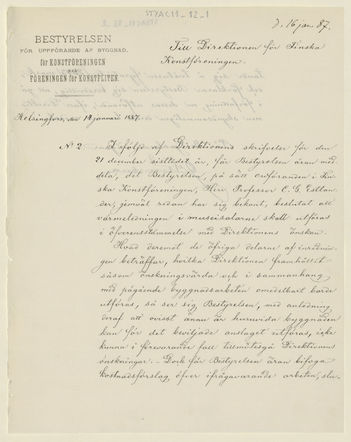 d. 16 jan 87.
BESTYRELSEN
FÖR UPPFÖRANDE AF BYGGNAD
för KONSTFÖRENINGEN
OCH
FÖRENINGEN FÖR KONSTFLITEN.
Till Direktionen för Finska
Konstföreningen.
Helsingfors, den 14 januarii 1887.
N:o 2.
I följd af Direktionens skrifvelse för den
21 december sistledet år, får Bestyrelsen äran med-
dela, att Bestyrelsen, på sätt ordföranden i Fin-
ska Konstföreningen, Herr Professor C. G. Estlan-
der, jemväl redan har sig bekant, beslutat att
värmeledningen i museisalarne skall utföras
i öfverensstämmelse med Direktionens önskan.
Hvad deremot de öfriga delarne af inrednin-
gen beträffar, hvilka Direktionen framhållit
såsom önskningsvärda och i sammanhang
med pågående byggnadsarbeten omedelbart borde
utföras, så ser sig Bestyrelsen, med anledning
deraf att ovisst ännu är huruvida byggnaden
kan för det beviljade anslaget utföras, icke
kunna i förevarande fall tillmötesgå Direktionens
önskningar. – Dock får Bestyrelsen äran bifoga
kostnadsförslag öfver ifrågavarande arbeten,